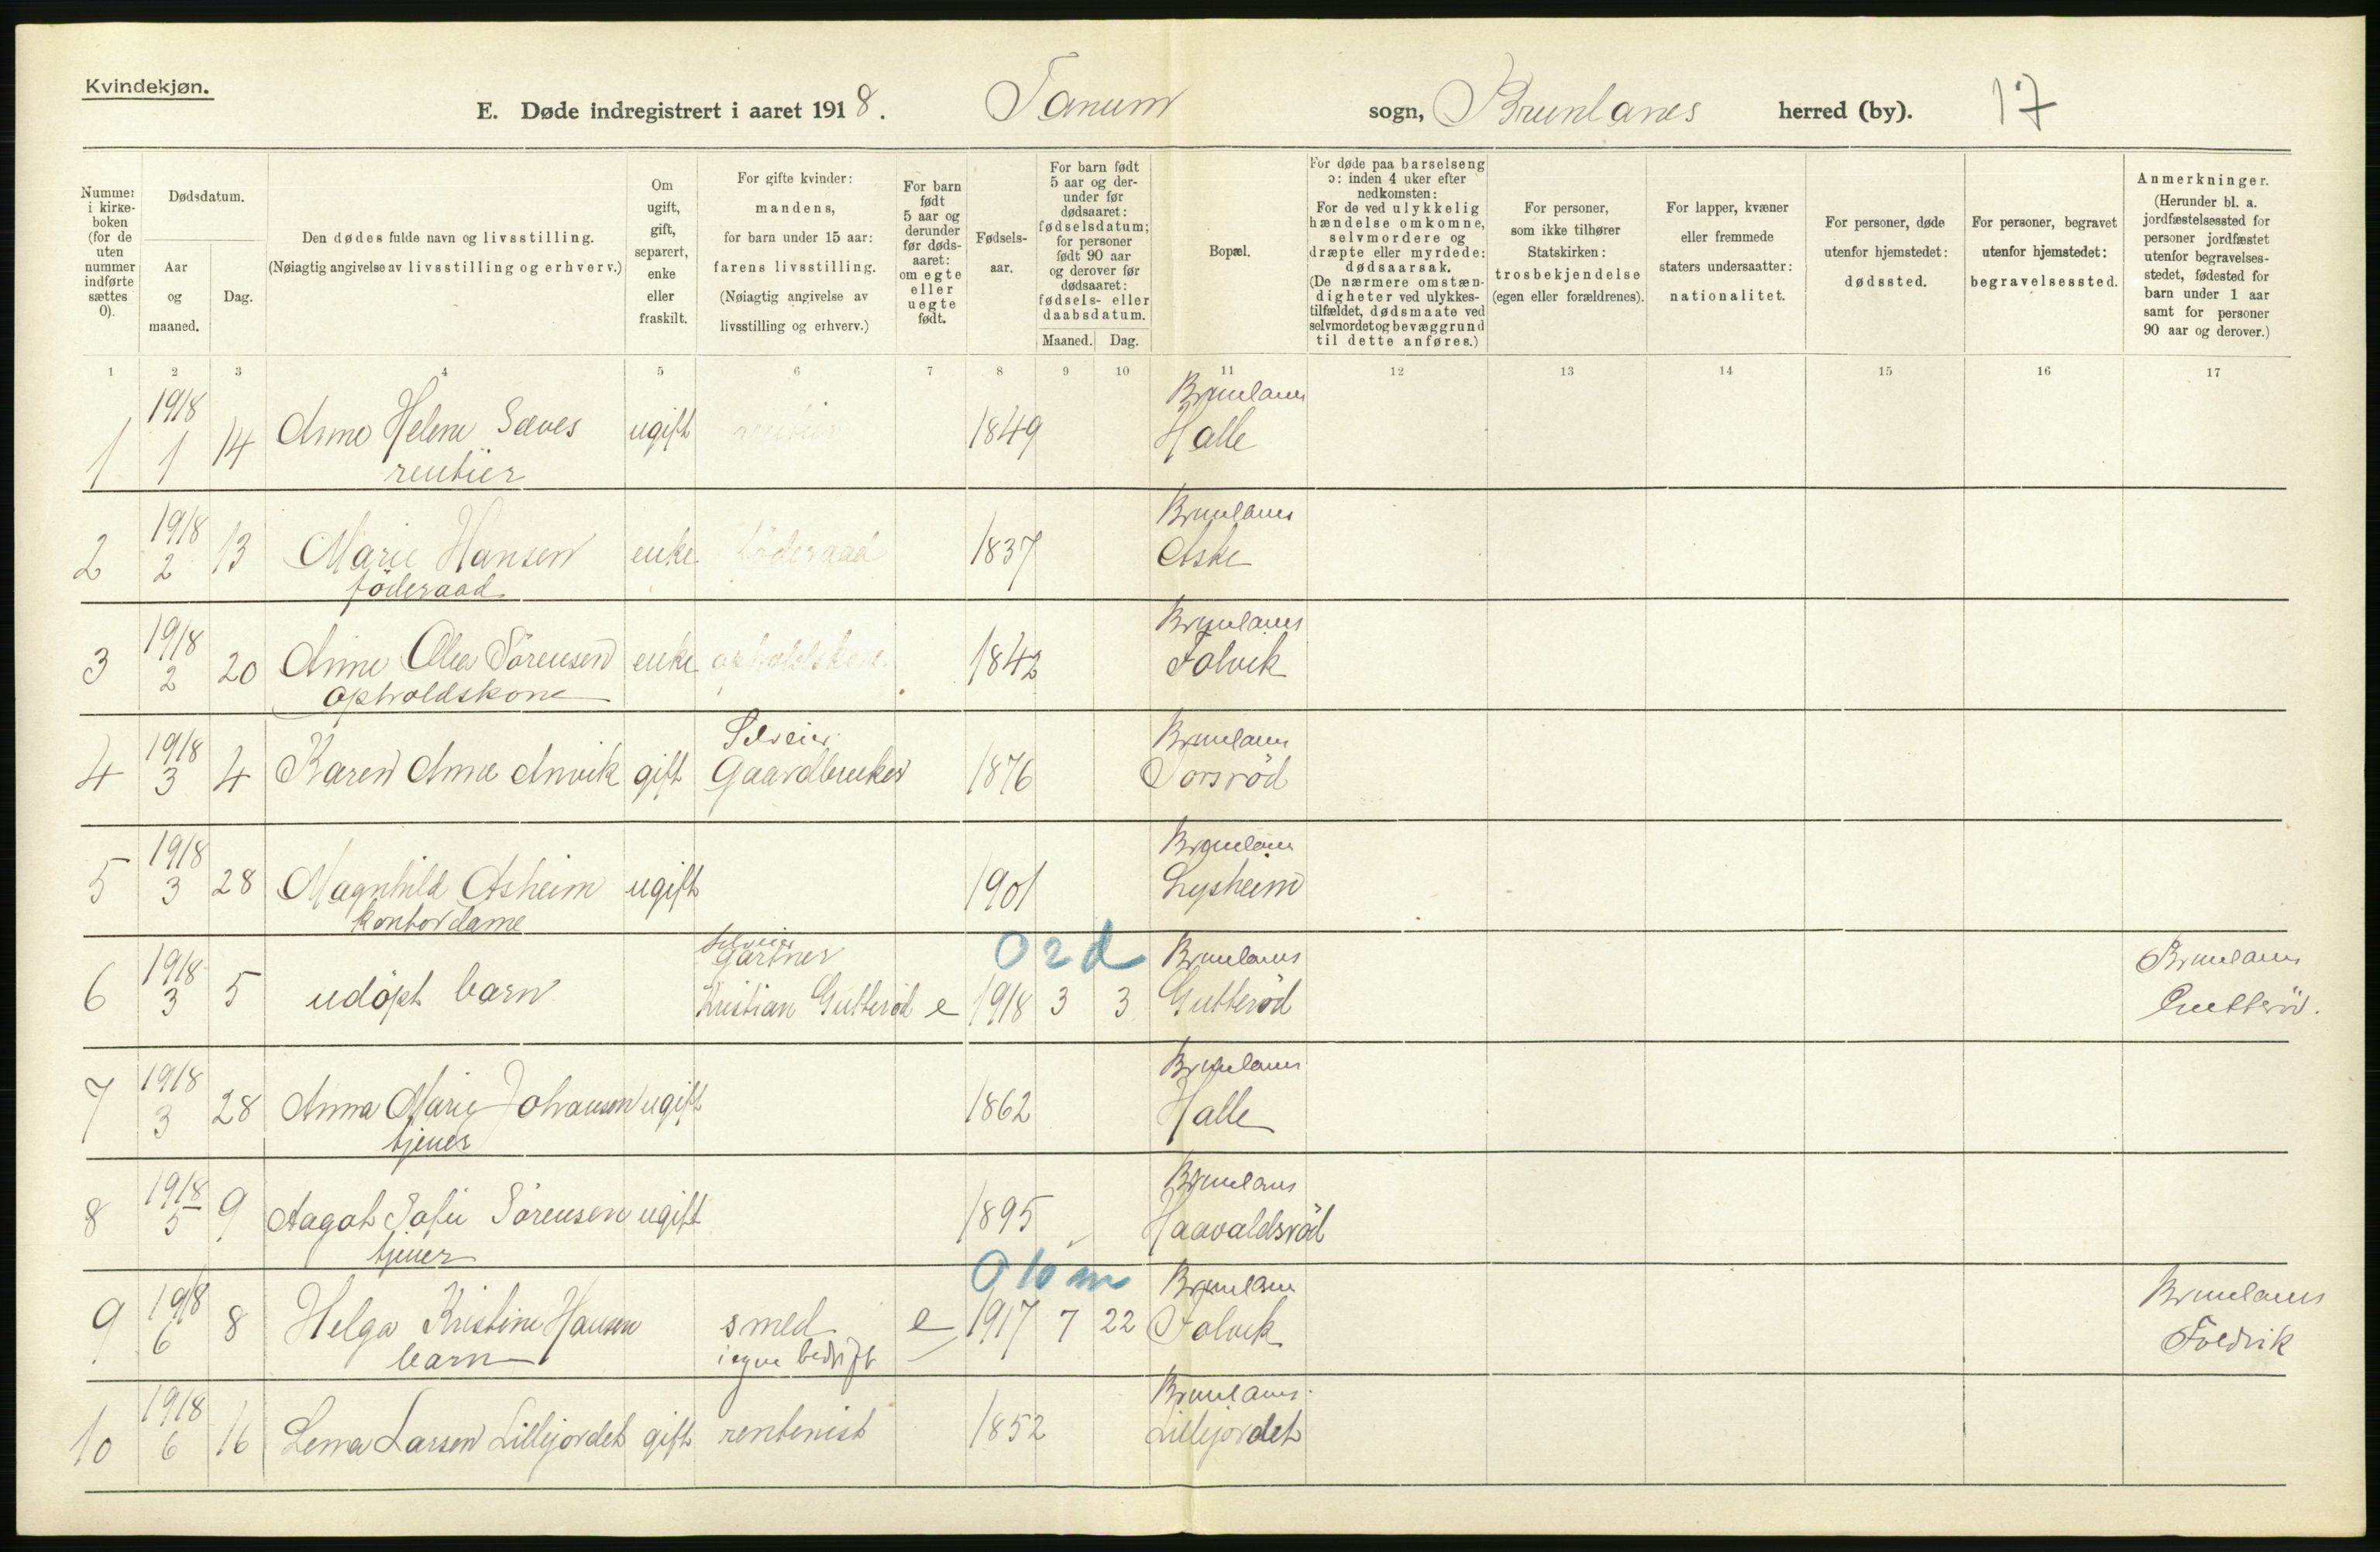 Kvindekjøn.
E. Døde indregistrert i aaret 1918. Tanum sogn, Brunlanes herred (by). 17
Nummer i kirke-boken (for de uten nummer indførte sættes 0).
Dødsdatum.
Aar og maaned.
Dag.
Den dødes fulde navn og livsstilling.
(Nøiagtig angivelse av livsstilling og erhverv.)
Om ugift, gift, separert, enke eller fraskilt.
For gifte kvinder:
mandens,
for barn under 15 aar:
farens livsstilling.
(Nøiagtig angivelse av
livsstilling og erhverv.)
For barn født 5 aar og derunder før døds-aaret: om egte eller uegte født.
Fødsels-aar.
For barn født 5 aar og der-under før dødsaaret: fødselsdatum; for personer født 90 aar og derover før dødsaaret: fødsels- eller daabsdatum.
Maaned.
Dag.
Bopæl.
For døde paa barselseng
ɔ: inden 4 uker efter
nedkomsten:
For de ved ulykkelig
hændelse omkomne,
selvmordere og
dræpte eller myrdede:
dødsaarsak.
(De nærmere omstæn-
digheter ved ulykkes-
tilfældet, dødsmaate ved
selvmordet og bevæggrund
til dette anføres.)
For personer,
som ikke tilhører
Statskirken:
trosbekjendelse
(egen eller forældrenes).
For lapper, kvæner
eller fremmede
staters undersaatter:
nationalitet.
For personer, døde
utenfor hjemstedet:
dødssted.
For personer, begravet
utenfor hjemstedet:
begravelsessted.
Anmerkninger.
(Herunder bl. a.
jordfæstelsessted for
personer jordfæstet
utenfor begravelses-
stedet, fødested for
barn under 1 aar
samt for personer
90 aar og derover.)
1 2 3 4 5 6 7 8 9 10 11 12 13 14 15 16 17
1918 Brunlanes
1 1 14 Anne Helene Sæves ugift rentier 1849 Halle
rentier
1918 Brunlanes
2 2 13 Marie Hansen enke föderaad 1837 Aske
föderaad
1918 Brunlanes
3 2 20 Anne Olea Sörensen enke opholdskone 1842 Folvik
opholdskone
1918 Selveier Brunlanes
4 3 4 Karen Anne Anvik gift Gaardbruker 1876 Torsröd
1918 Brunlanes
5 3 28 Magnhild Asheim ugift 1901 Lysheim
kontordame
1918 Selveier Gartner 0 2 d Brunlanes Brunlanes
6 3 5 udöpt barn Kristian Gutteröd e 1918 3 3 Gutteröd Gutteröd.
1918 Brunlanes
7 3 28 Anna Marie Johansen ugift 1862 Halle
tjener
1918 Brunlanes
8 5 9 Aagot Sofie Sörensen ugift 1895 Haavaldsröd
tjener
1918 0 10 m Brunlanes Brunlanes
9 6 8 Helga Kristine Hansen smed e 1917 7 22 Folvik Foldvik
barn i egne bedrift
1918 Brunlanes
10 6 16 Lena Larsen Lillejordet gift rentenist 1852 Lillejordet